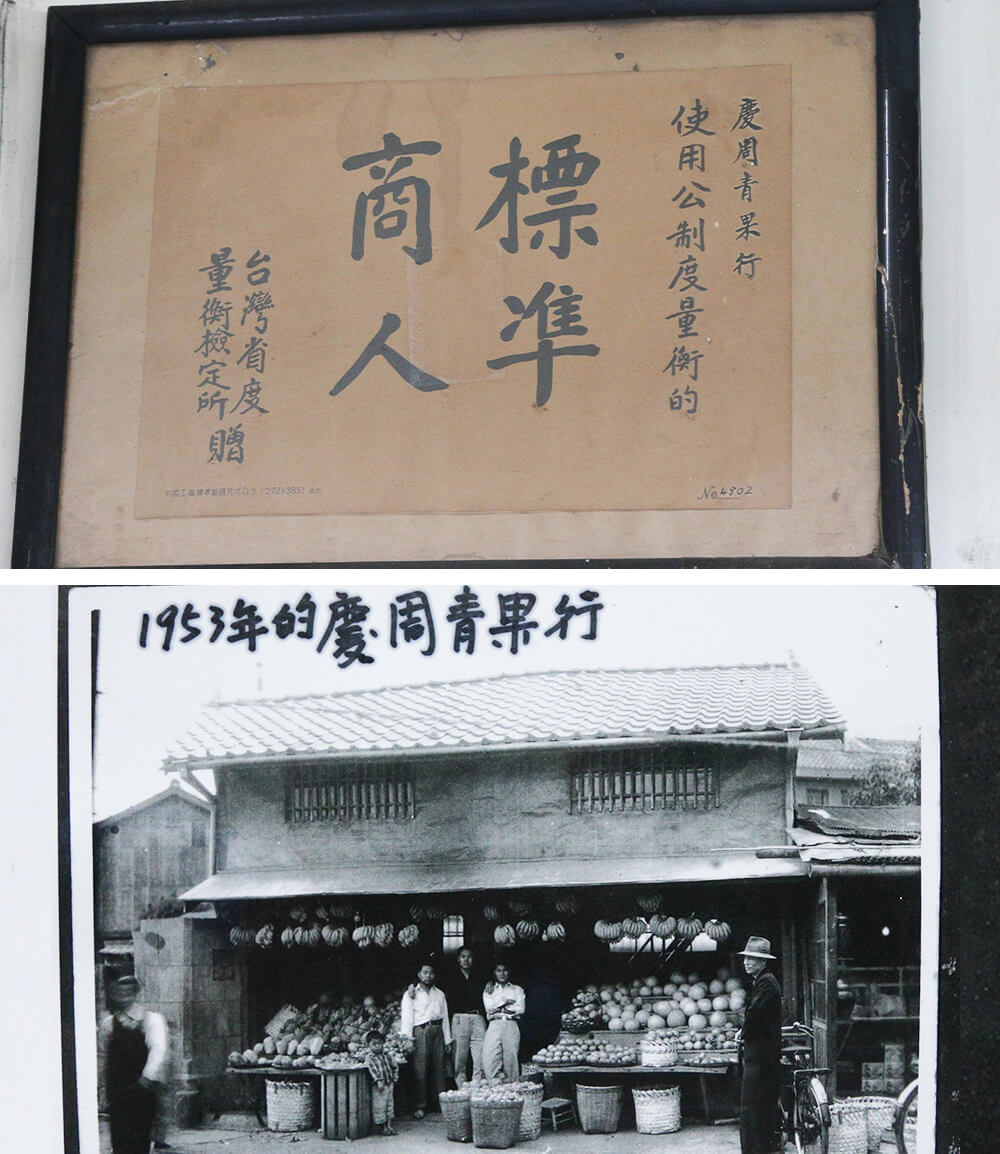 慶周青果行
使用公制度量衡的
標準
商人
台灣省度
量衡檢定所 贈
中國工業標準紙張尺寸D3(272×385)mm
No.4802
1953年的慶周青果行